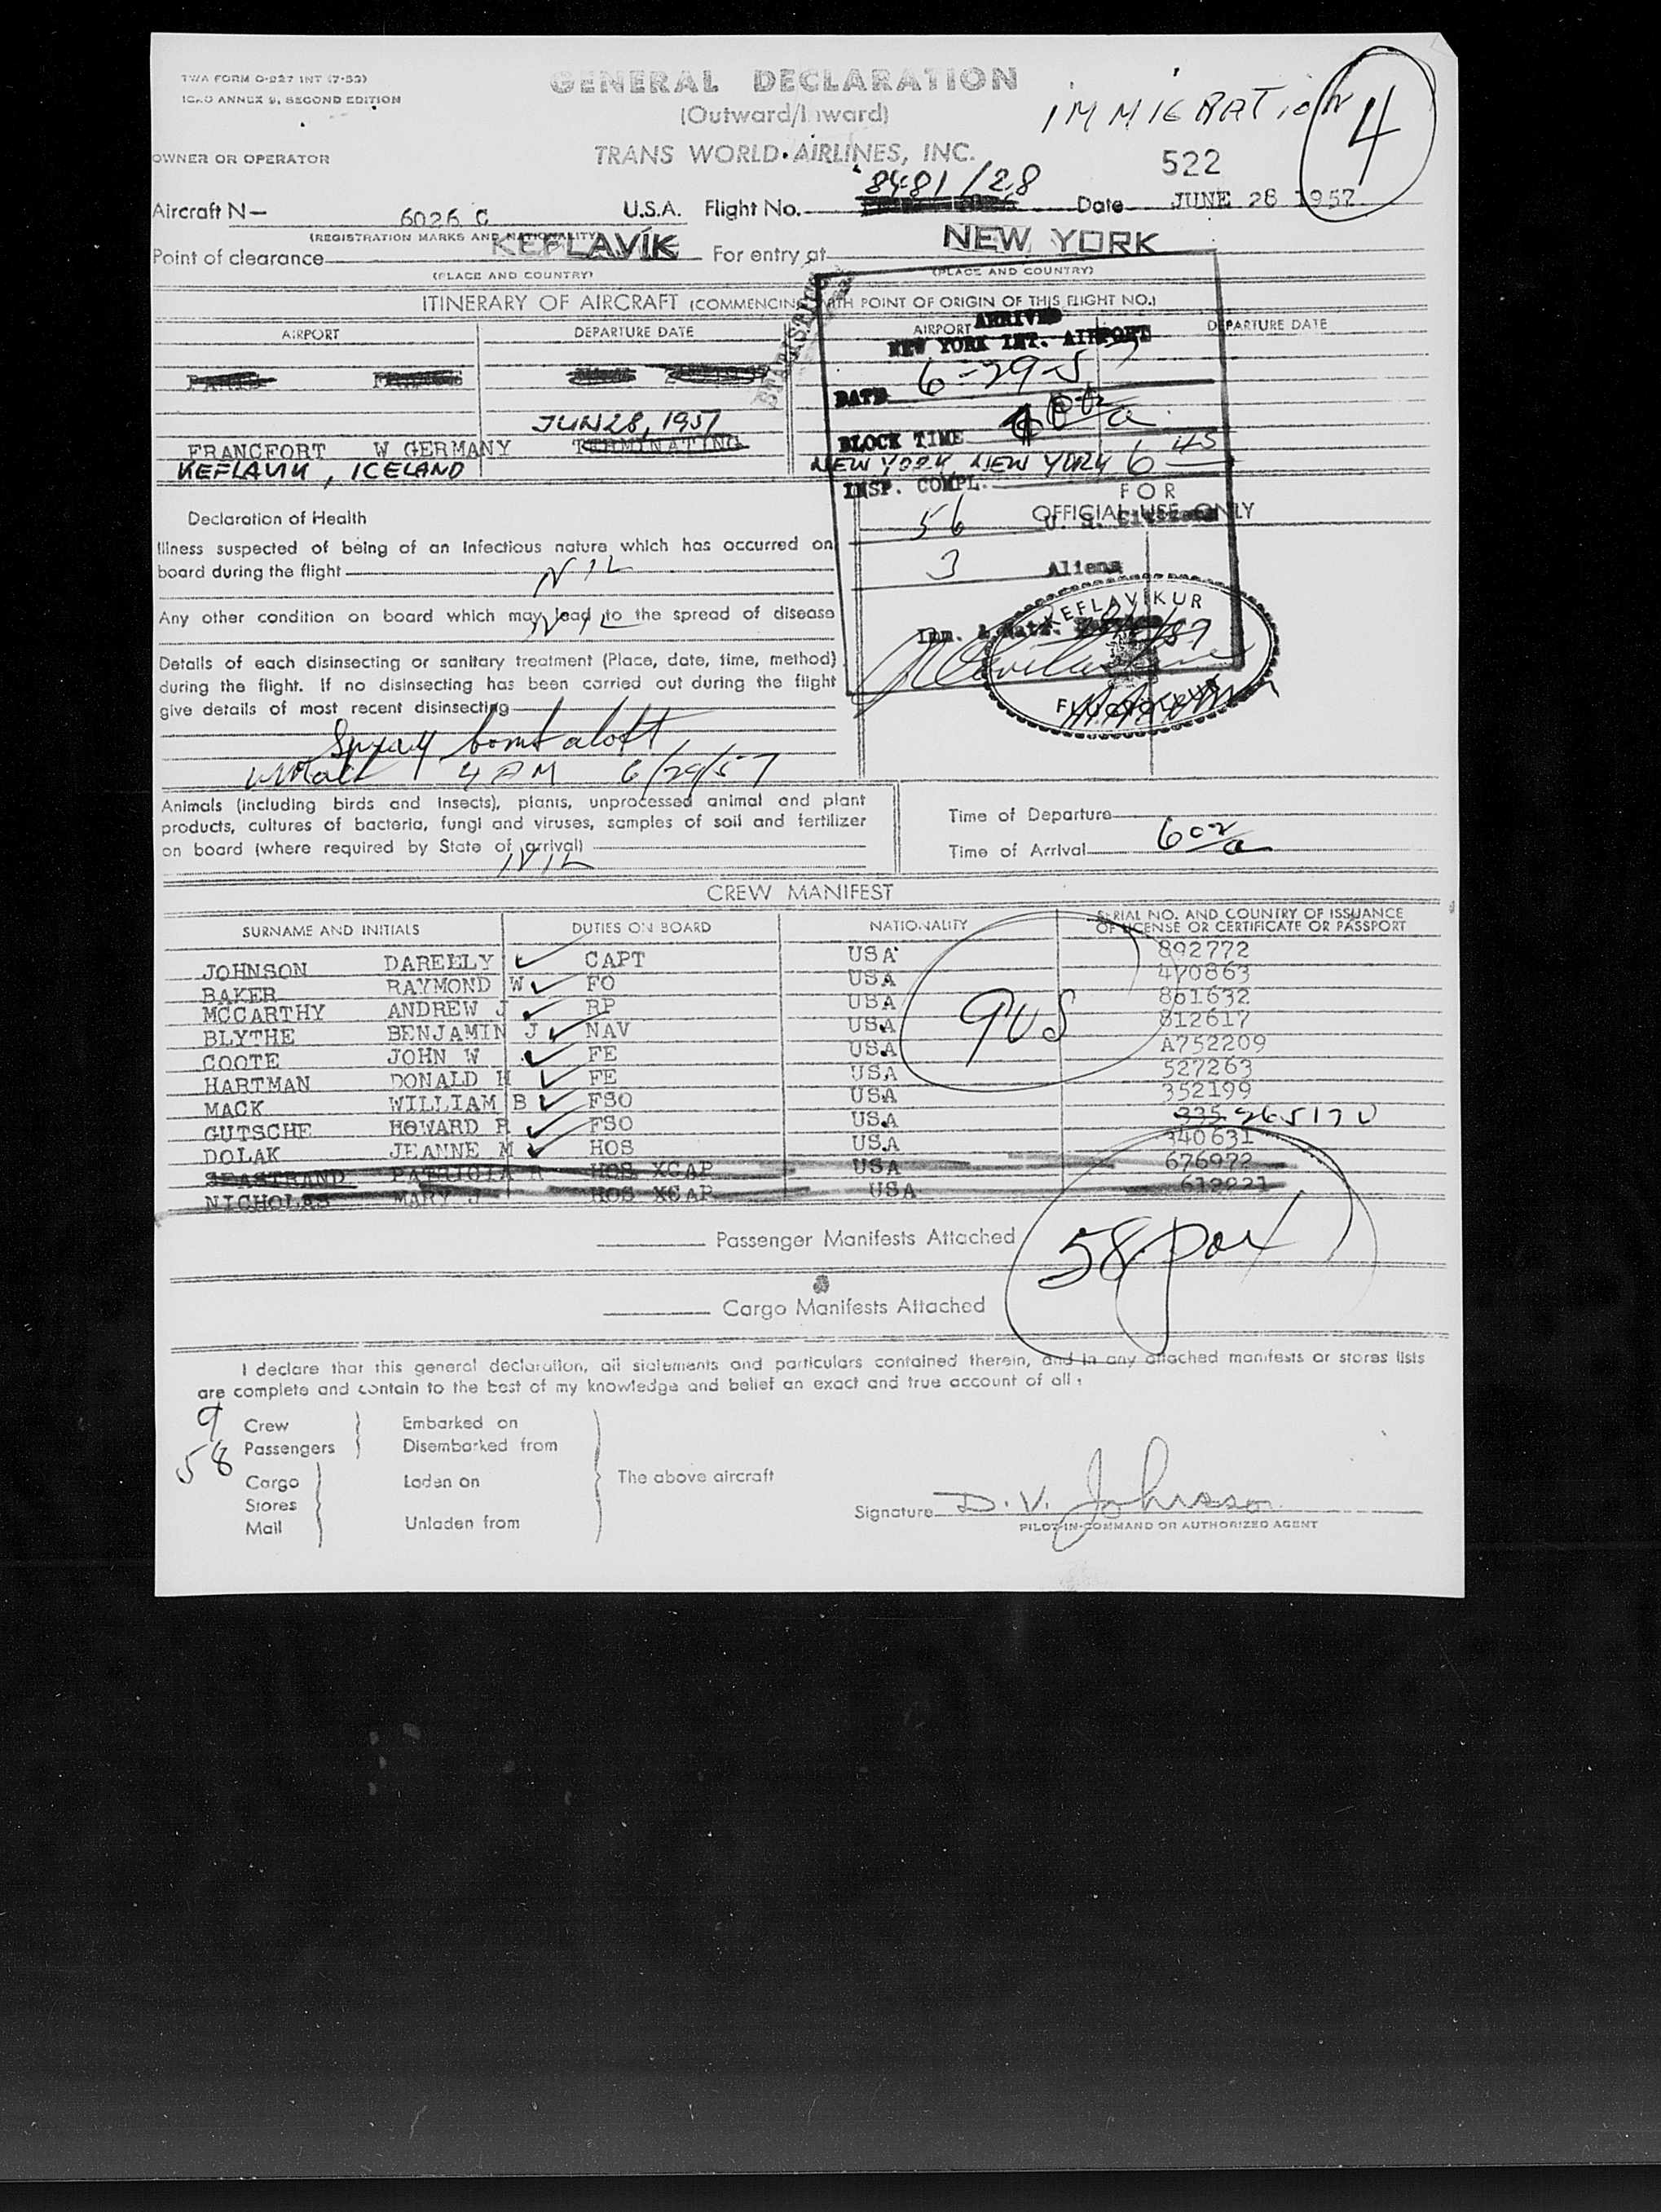 TWA FORM O-927 INT (7-53)
ICAO ANNEX 9, SECOND EDITION
GENERAL DECLARATION
(Outward/Inward)
IMMIGRATION
4
OWNER OR OPERATOR
TRANS WORLD AIRLINES, INC.
522
8481/28
Aircraft N— 6026 C U.S.A. Flight No. Date JUNE 28 1957
(REGISTRATION MARKS AND NATIONALITY)
Point of clearance KEFLAVÍK For entry at NEW YORK
(PLACE AND COUNTRY) (PLACE AND COUNTRY)
ITINERARY OF AIRCRAFT (COMMENCING WITH POINT OF ORIGIN OF THIS FLIGHT NO.)
AIRPORT DEPARTURE DATE AIRPORT DEPARTURE DATE
ARRIVED
NEW YORK INT. AIRPORT
DATE 6-29-57
JUN 28, 1957
BLOCK TIME
FRANCFORT W GERMANY TERMINATING
KEFLAVIK, ICELAND NEW YORK, NEW YORK
INSP. COMPL. 6 45
FOR
OFFICIAL USE ONLY
56 U. S. Citizens
3 Aliens
Imm. & Natz. Service
KEFLAVÍKUR
Declaration of Health
Illness suspected of being of an infectious nature which has occurred on
board during the flight NIL
Any other condition on board which may lead to the spread of disease
NIL
Details of each disinsecting or sanitary treatment (Place, date, time, method)
during the flight. If no disinsecting has been carried out during the flight
give details of most recent disinsecting
Spray bomb aloft
4 AM 6/29/57
Animals (including birds and insects), plants, unprocessed animal and plant
products, cultures of bacteria, fungi and viruses, samples of soil and fertilizer
on board (where required by State of arrival)
NIL
Time of Departure
Time of Arrival 6 02 a
CREW MANIFEST
SURNAME AND INITIALS DUTIES ON BOARD NATIONALITY SERIAL NO. AND COUNTRY OF ISSUANCE
OF LICENSE OR CERTIFICATE OR PASSPORT
JOHNSON DARELLY CAPT USA 892772
BAKER RAYMOND W FO USA 470863
MCCARTHY ANDREW J RP USA 861632
BLYTHE BENJAMIN J NAV USA 812617
COOTE JOHN W FE USA A752209
HARTMAN DONALD H FE USA 527263
MACK WILLIAM B FSO USA 352199
GUTSCHE HOWARD R FSO USA 335 965170
DOLAK JEANNE M HOS USA 340631
SEASTRAND PATRICIA R HOS XCAP USA 676972
NICHOLAS MARY J HOS XCAP USA
9 US
Passenger Manifests Attached
58 pax
Cargo Manifests Attached
I declare that this general declaration, all statements and particulars contained therein, and in any attached manifests or stores lists
are complete and contain to the best of my knowledge and belief an exact and true account of all:
9 Crew Embarked on
58 Passengers Disembarked from
Cargo Laden on The above aircraft
Stores
Mail Unladen from
Signature D. V. Johnson
PILOT-IN-COMMAND OR AUTHORIZED AGENT